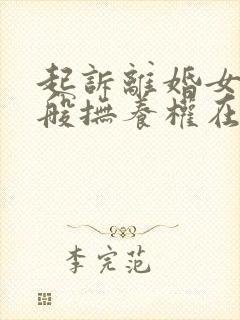 起訴離婚女
般撫養權在
李完范